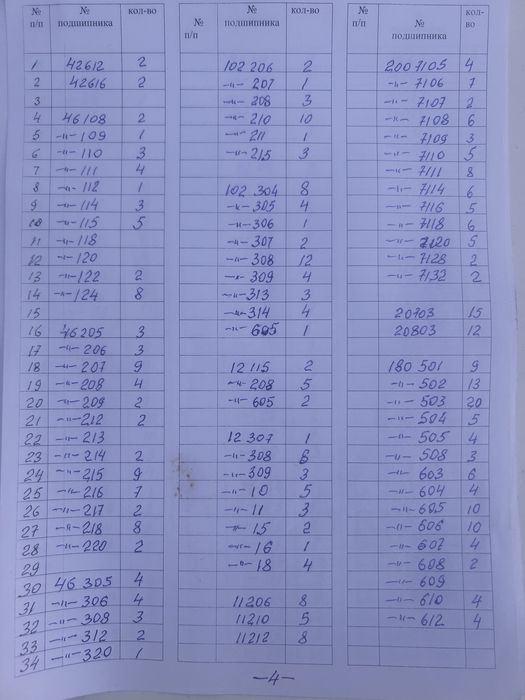 № п/п № подшипника кол-во
1 42612 2
2 42616 2
3
4 46108 2
5 -"- 109 1
6 -"- 110 3
7 -"- 111 4
8 -"- 112 1
9 -"- 114 3
10 -"- 115 5
11 -"- 118
12 -"- 120
13 -"- 122 2
14 -"- 124 8
15
16 46205 3
17 -"- 206 3
18 -"- 207 9
19 -"- 208 4
20 -"- 209 2
21 -"- 212 2
22 -"- 213
23 -"- 214 2
24 -"- 215 9
25 -"- 216 7
26 -"- 217 2
27 -"- 218 8
28 -"- 220 2
29
30 46 305 4
31 -"- 306 4
32 -"- 308 3
33 -"- 312 2
34 -"- 320 1
№ п/п № подшипника кол-во
102 206 2
-"- 207 1
-"- 208 3
-"- 210 10
-"- 211 1
-"- 215 3
102 304 8
-"- 305 4
-"- 306 1
-"- 307 2
-"- 308 12
-"- 309 4
-"- 313 3
-"- 314 4
-"- 605 1
12 115 2
-"- 208 5
-"- 605 2
12 307 1
-"- 308 6
-"- 309 3
-"- 10 5
-"- 11 3
-"- 15 2
-"- 16 1
-"- 18 4
11206 8
11210 5
11212 8
№ п/п № подшипника кол-во
2007105 4
-"- 7106 7
-"- 7107 2
-"- 7108 6
-"- 7109 3
-"- 7110 5
-"- 7111 8
-"- 7114 6
-"- 7116 5
-"- 7118 6
-"- 7120 5
-"- 7128 2
-"- 7132 2
20703 15
20803 12
180 501 9
-"- 502 13
-"- 503 20
-"- 504 5
-"- 505 4
-"- 508 3
-"- 603 6
-"- 604 4
-"- 605 10
-"- 606 10
-"- 607 4
-"- 608 2
-"- 609
-"- 610 4
-"- 612 4
-4-